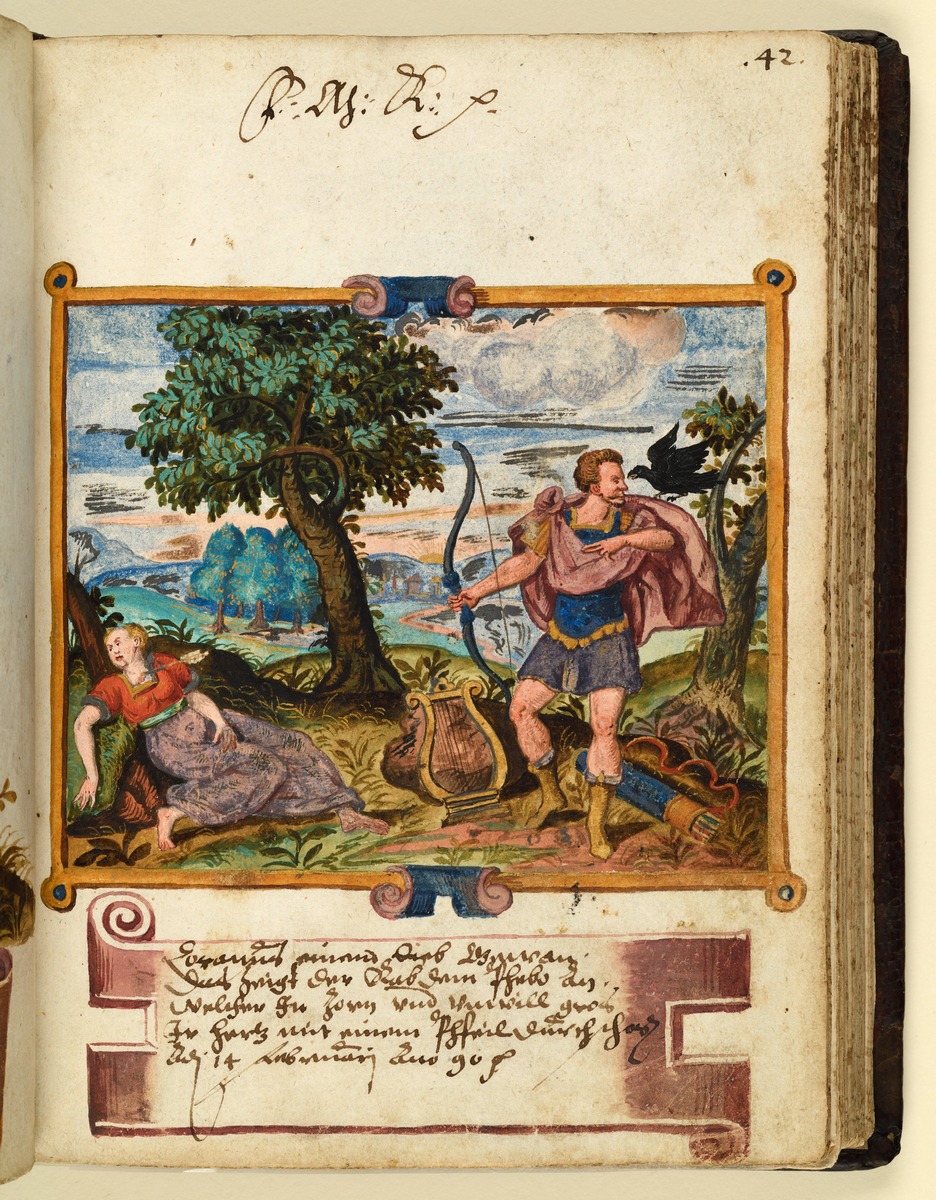 .42.
Coronis einend lieb Gewan.
Das zeigt der Rab dem Phebo an.
Welcher In Zorn und unwill gros
Ir hertz mit einem Pfeil durch
Adj 14 Februarij Ano 90